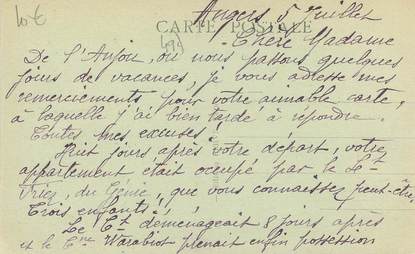 10€
Angers, 5 Juillet
CARTE POSTALE
Chère Madame
De l'Anjou, où nous passons quelques
jours de vacances, je vous adresse mes
remerciements pour votre aimable carte,
à laquelle j'ai bien tardé à répondre.
Toutes mes excuses!
Huit jours après votre départ, votre
appartement était occupé par le Lt
du Génie, que vous connaissez peut-être,
Trois enfants!!
Le Ct déménageait 8 jours après
et le Cne Warabiot prenait enfin possession